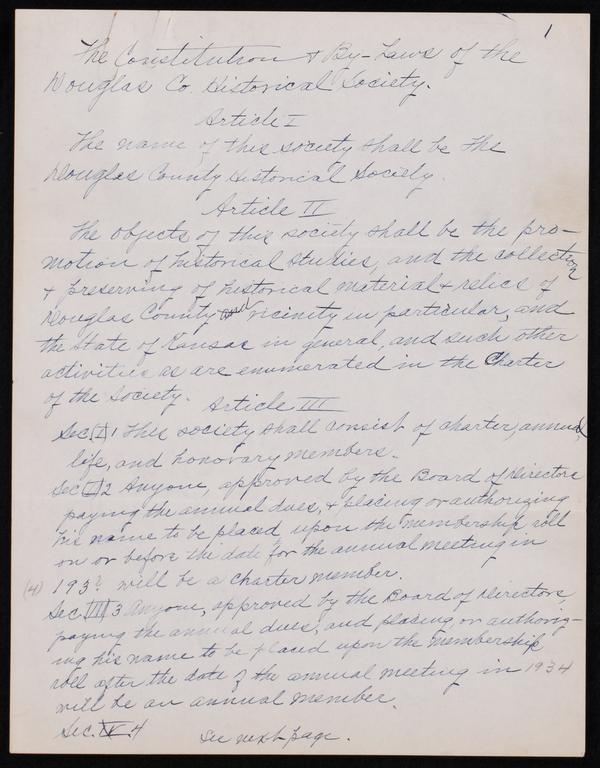 1
The Constitution & By-Laws of the
Douglas Co. Historical Society.
Article I
The name of this society shall be The
Douglas County Historical Society.
Article II
The objects of this society shall be the pro-
motion of historical studies, and the collecting
& preserving of historical material & relics of
Douglas County and vicinity in particular, and
the State of Kansas in general, and such other
activities as are enumerated in the Charter
of the Society.
Article III
Sec. I 1 This society shall consist of charter, annual,
life, and honorary members.
Sec II 2 Anyone, approved by the Board of Directors
paying the annual dues, & placing or authorizing
his name to be placed upon the membership roll
on or before the date for the annual meeting in
(4) 193? will be a charter member.
Sec. III 3 Anyone, approved by the Board of Directors,
paying the annual dues, and placing or authoriz-
ing his name to be placed upon the membership
roll after the date of the annual meeting in 1934
will be an annual member.
Sec. IV. 4
See next page.